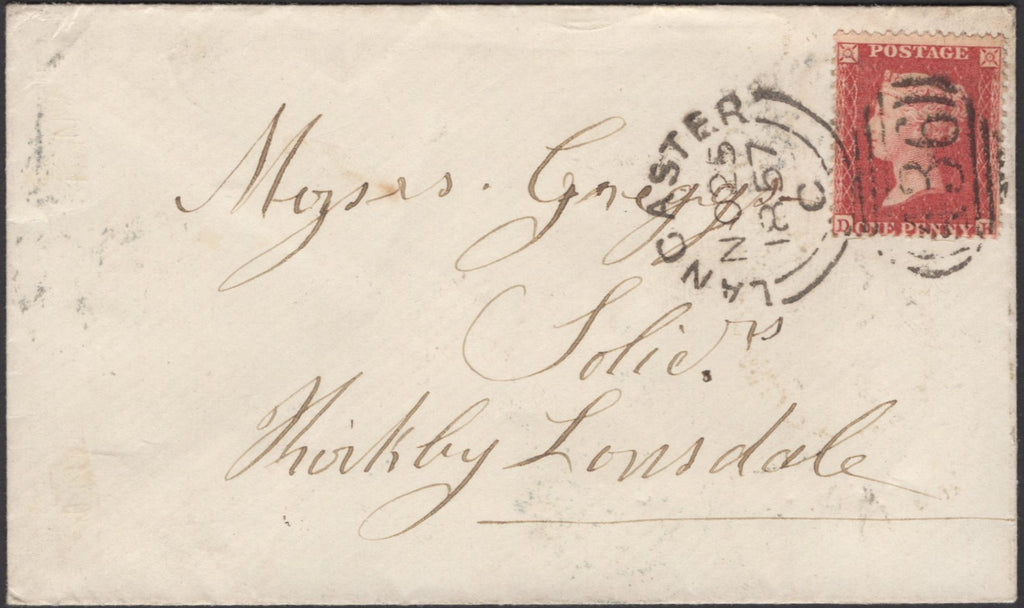 POSTAGE
ONE PENNY
D
LANCASTER
NO 25
1857
C
Messrs. Greggs
Solic.rs
Kirkby Lonsdale